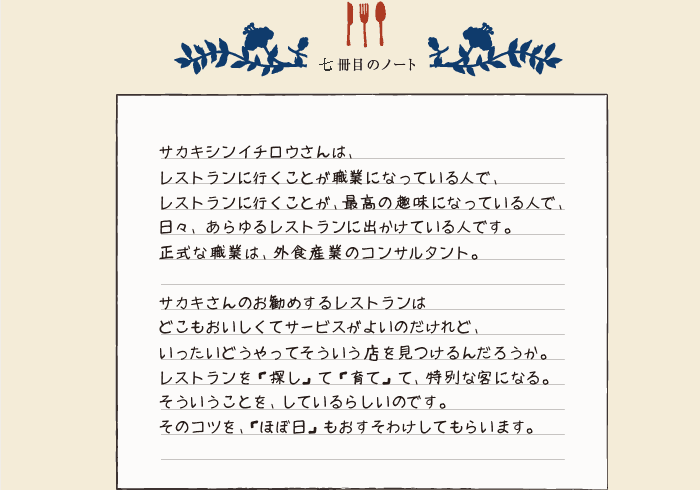 七冊目のノート
サカキシンイチロウさんは、
レストランに行くことが職業になっている人で、
レストランに行くことが、最高の趣味になっている人で、
日々、あらゆるレストランに出かけている人です。
正式な職業は、外食産業のコンサルタント。
サカキさんのお勧めするレストランは
どこもおいしくてサービスがよいのだけれど、
いったいどうやってそういう店を見つけるんだろうか。
レストランを『探し』て『育て』て、特別な客になる。
そういうことを、しているらしいのです。
そのコツを、『ほぼ日』もおすそわけしてもらいます。